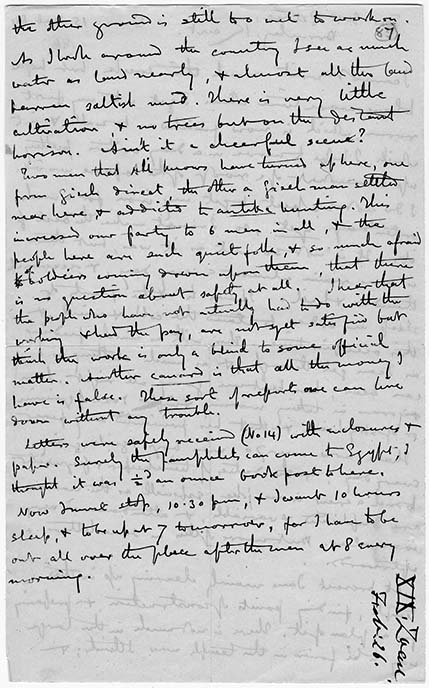 87
the other ground is still too wet to work on.
As I look around the country I see as much
water as land nearly, & almost all this land
barren saltish mud. There is very little
cultivation, & no trees but on the distant
horizon. Ain't it a cheerful scene?
Two men that Ali knows have turned up here, one
from Gizeh direct, the other a Gizeh man settled
near here, & addicted to antika hunting. This
increased our party to 6 men in all, & the
people here are such quiet folk, & so much afraid
of soldiers coming down upon them, that there
is no question about safety at all. I hear that
the people who have not actually had to do with the
working & had the pay, are not yet satisfied but
think the work is only a blind to some official
matter. Another canard is that all the money I
have is false. These sort of reports one can live
down without any trouble.
Letters were safely received (No 14) with enclosures &
paper. Surely the pamphlets can come to Egypt; I
thought it was ½d an ounce book post to here.
Now I must stop, 10.30 p.m., & I want 10 hours
sleep, & to be up at 7 tomorrow, for I have to be
out all over the place after the men at 8 every
morning.
XIX.
Feb. 26.